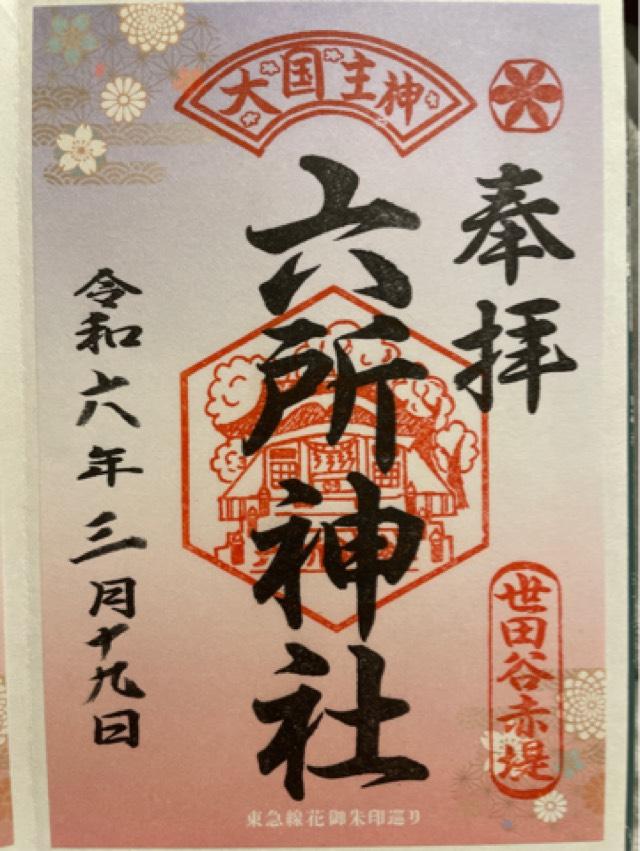 大国主神
奉拝
六所神社
世田谷赤堤
令和六年三月十九日
東急線花御朱印巡り